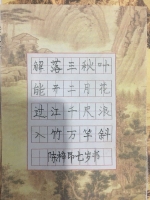 解落三秋叶
能开二月花
过江千尺浪
入竹万竿斜
陈梓昂七岁书